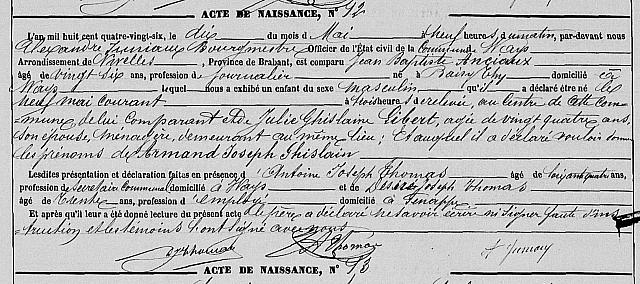 ACTE DE NAISSANCE, N° 72
L'an mil huit cent quatre-vingt-six, le dix du mois d Mai à neuf heures, du matin, par-devant nous
Alexandre Bourgmestre Officier de l'État civil de la Commune de Ways
Arrondissement de Nivelles, Province de Brabant, est comparu Jean Baptiste Anciaux
âgé de vingt six ans, profession de Journalier né à Baisy Thy domicilié à
Ways lequel nous a exhibé un enfant du sexe masculin qu'il a déclaré être né le
neuf mai courant à trois heures de relevée, au Centre de cette Com-
mune, de lui Comparant et de Julie Ghislaine Gibert, agée de vingt quatre ans,
son épouse, ménagère, demeurant au même lieu; Et auquel il a déclaré vouloir donner
les prénoms de Armand Joseph Ghislain
Lesdites présentation et déclaration faites en présence d Antoine Joseph Thomas âgé de soixante quatre ans,
profession de Secrétaire Communal domicilié à Ways et de Désiré Joseph Thomas
âgé de trente ans, profession d'employé domicilié à Genappe
Et après qu'il leur a été donné lecture du présent acte le père a déclaré ne savoir écrire ni signer faute d'ins-
truction et les témoins ont signé avec nous
Thomas
ACTE DE NAISSANCE, N° 73